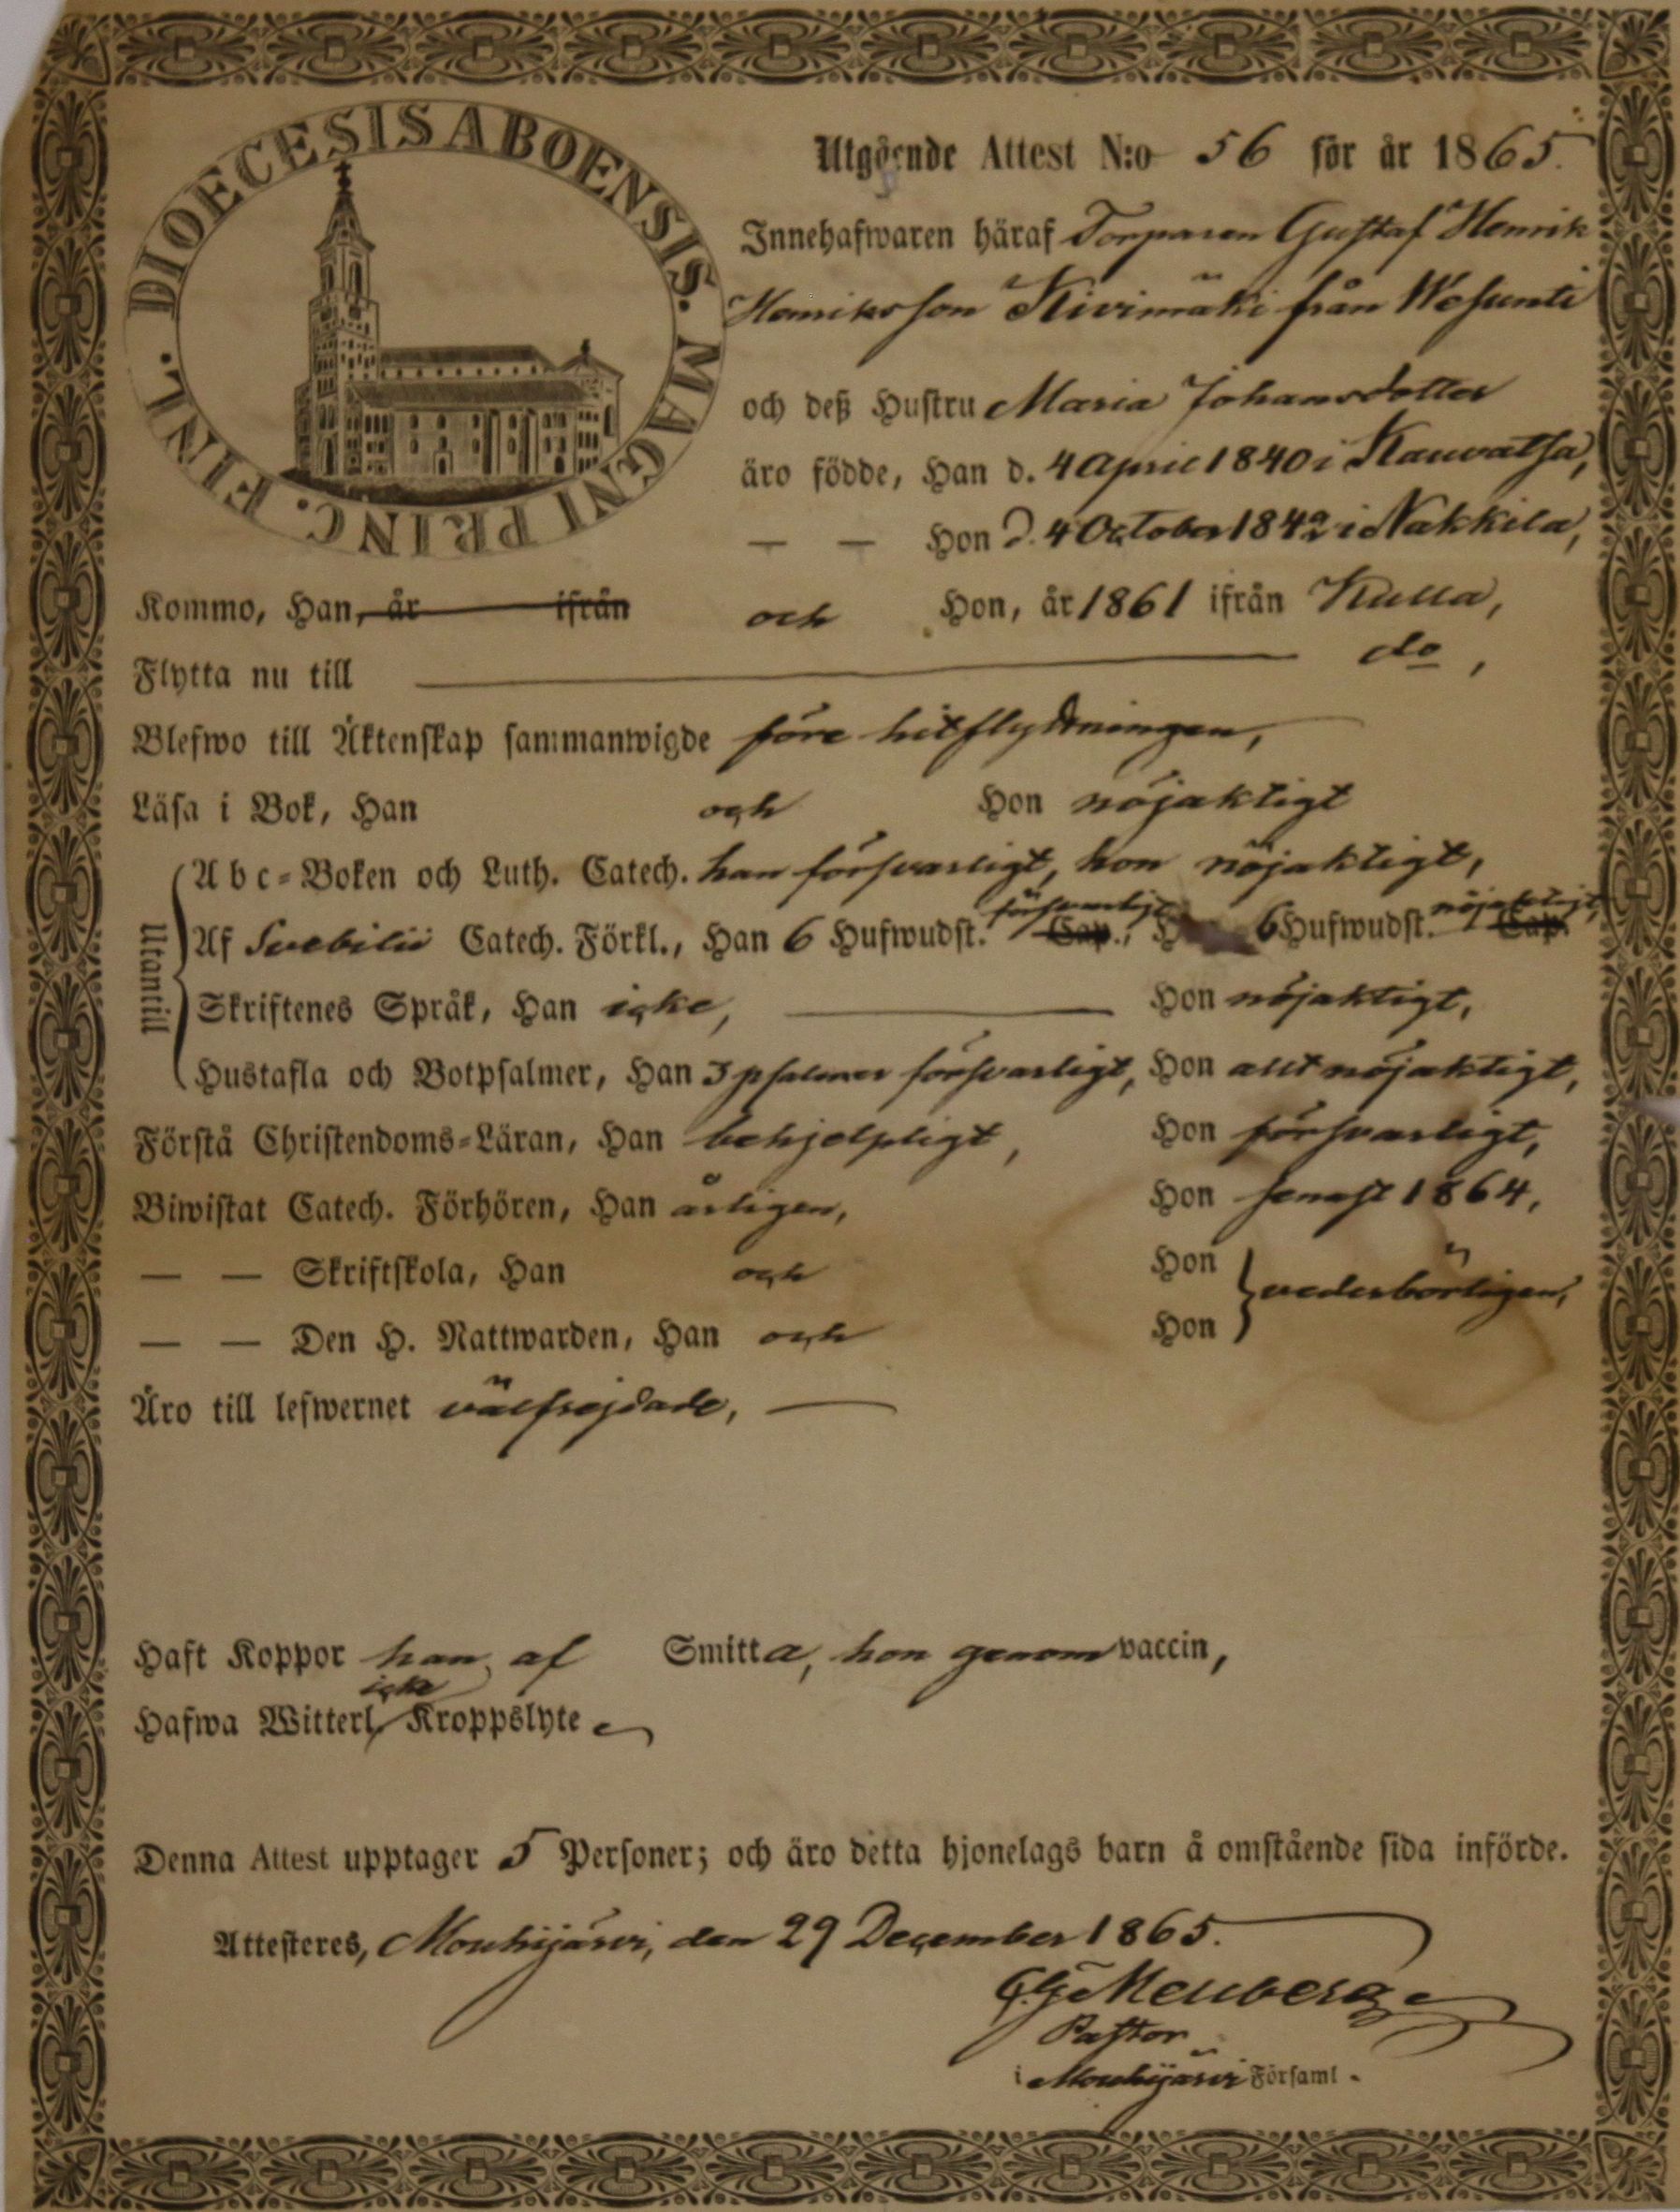 DIOECESIS ABOENSIS. MAGNI PRINC. FINL.
Utgående Attest N:o 56 för år 1865.
Innehafwaren häraf Torparen Gustaf Henrik
Henriksson Kivimäki från Wesunti
och deß Hustru Maria Johansdotter
äro födde, Han d. 4 April 1840 i Kauvatsa,
— — Hon d. 4 October 1842 i Nakkila,
Kommo, Han, år ifrån och Hon, år 1861 ifrån Kulla,
Flytta nu till do,
Blefwo till Äktenskap sammanwigde före hitflyttningen,
Läsa i Bok, Han och Hon nöjaktigt
Utantill
Abc-Boken och Luth. Catech. han försvarligt, hon nöjaktigt,
Af Svebilii Catech. Förkl., Han 6 Hufwudst. försvarligt Cap., 6 Hufwudst. nöjaktigt, Cap.
Skriftenes Språk, Han icke, Hon nöjaktigt,
Hustafla och Botpsalmer, Han 3 psalmer försvarligt, Hon allt nöjaktigt,
Förstå Christendoms-Läran, Han behjelpligt, Hon försvarligt,
Biwistat Catech. Förhören, Han årligen, Hon senast 1864,
— — Skriftskola, Han och Hon
— — Den H. Nattwarden, Han och Hon } vederbörligen,
Äro till lefwernet välfrejdade, —
Haft Koppor han af Smitta, hon genom vaccin,
Hafwa Witterl. icke Kroppslyte
Denna Attest upptager 5 Personer; och äro detta hjonelags barn å omstående sida införde.
Attesteres, Mouhijärvi, den 29 December 1865.
Pastor
i Mouhijärvi Församl.